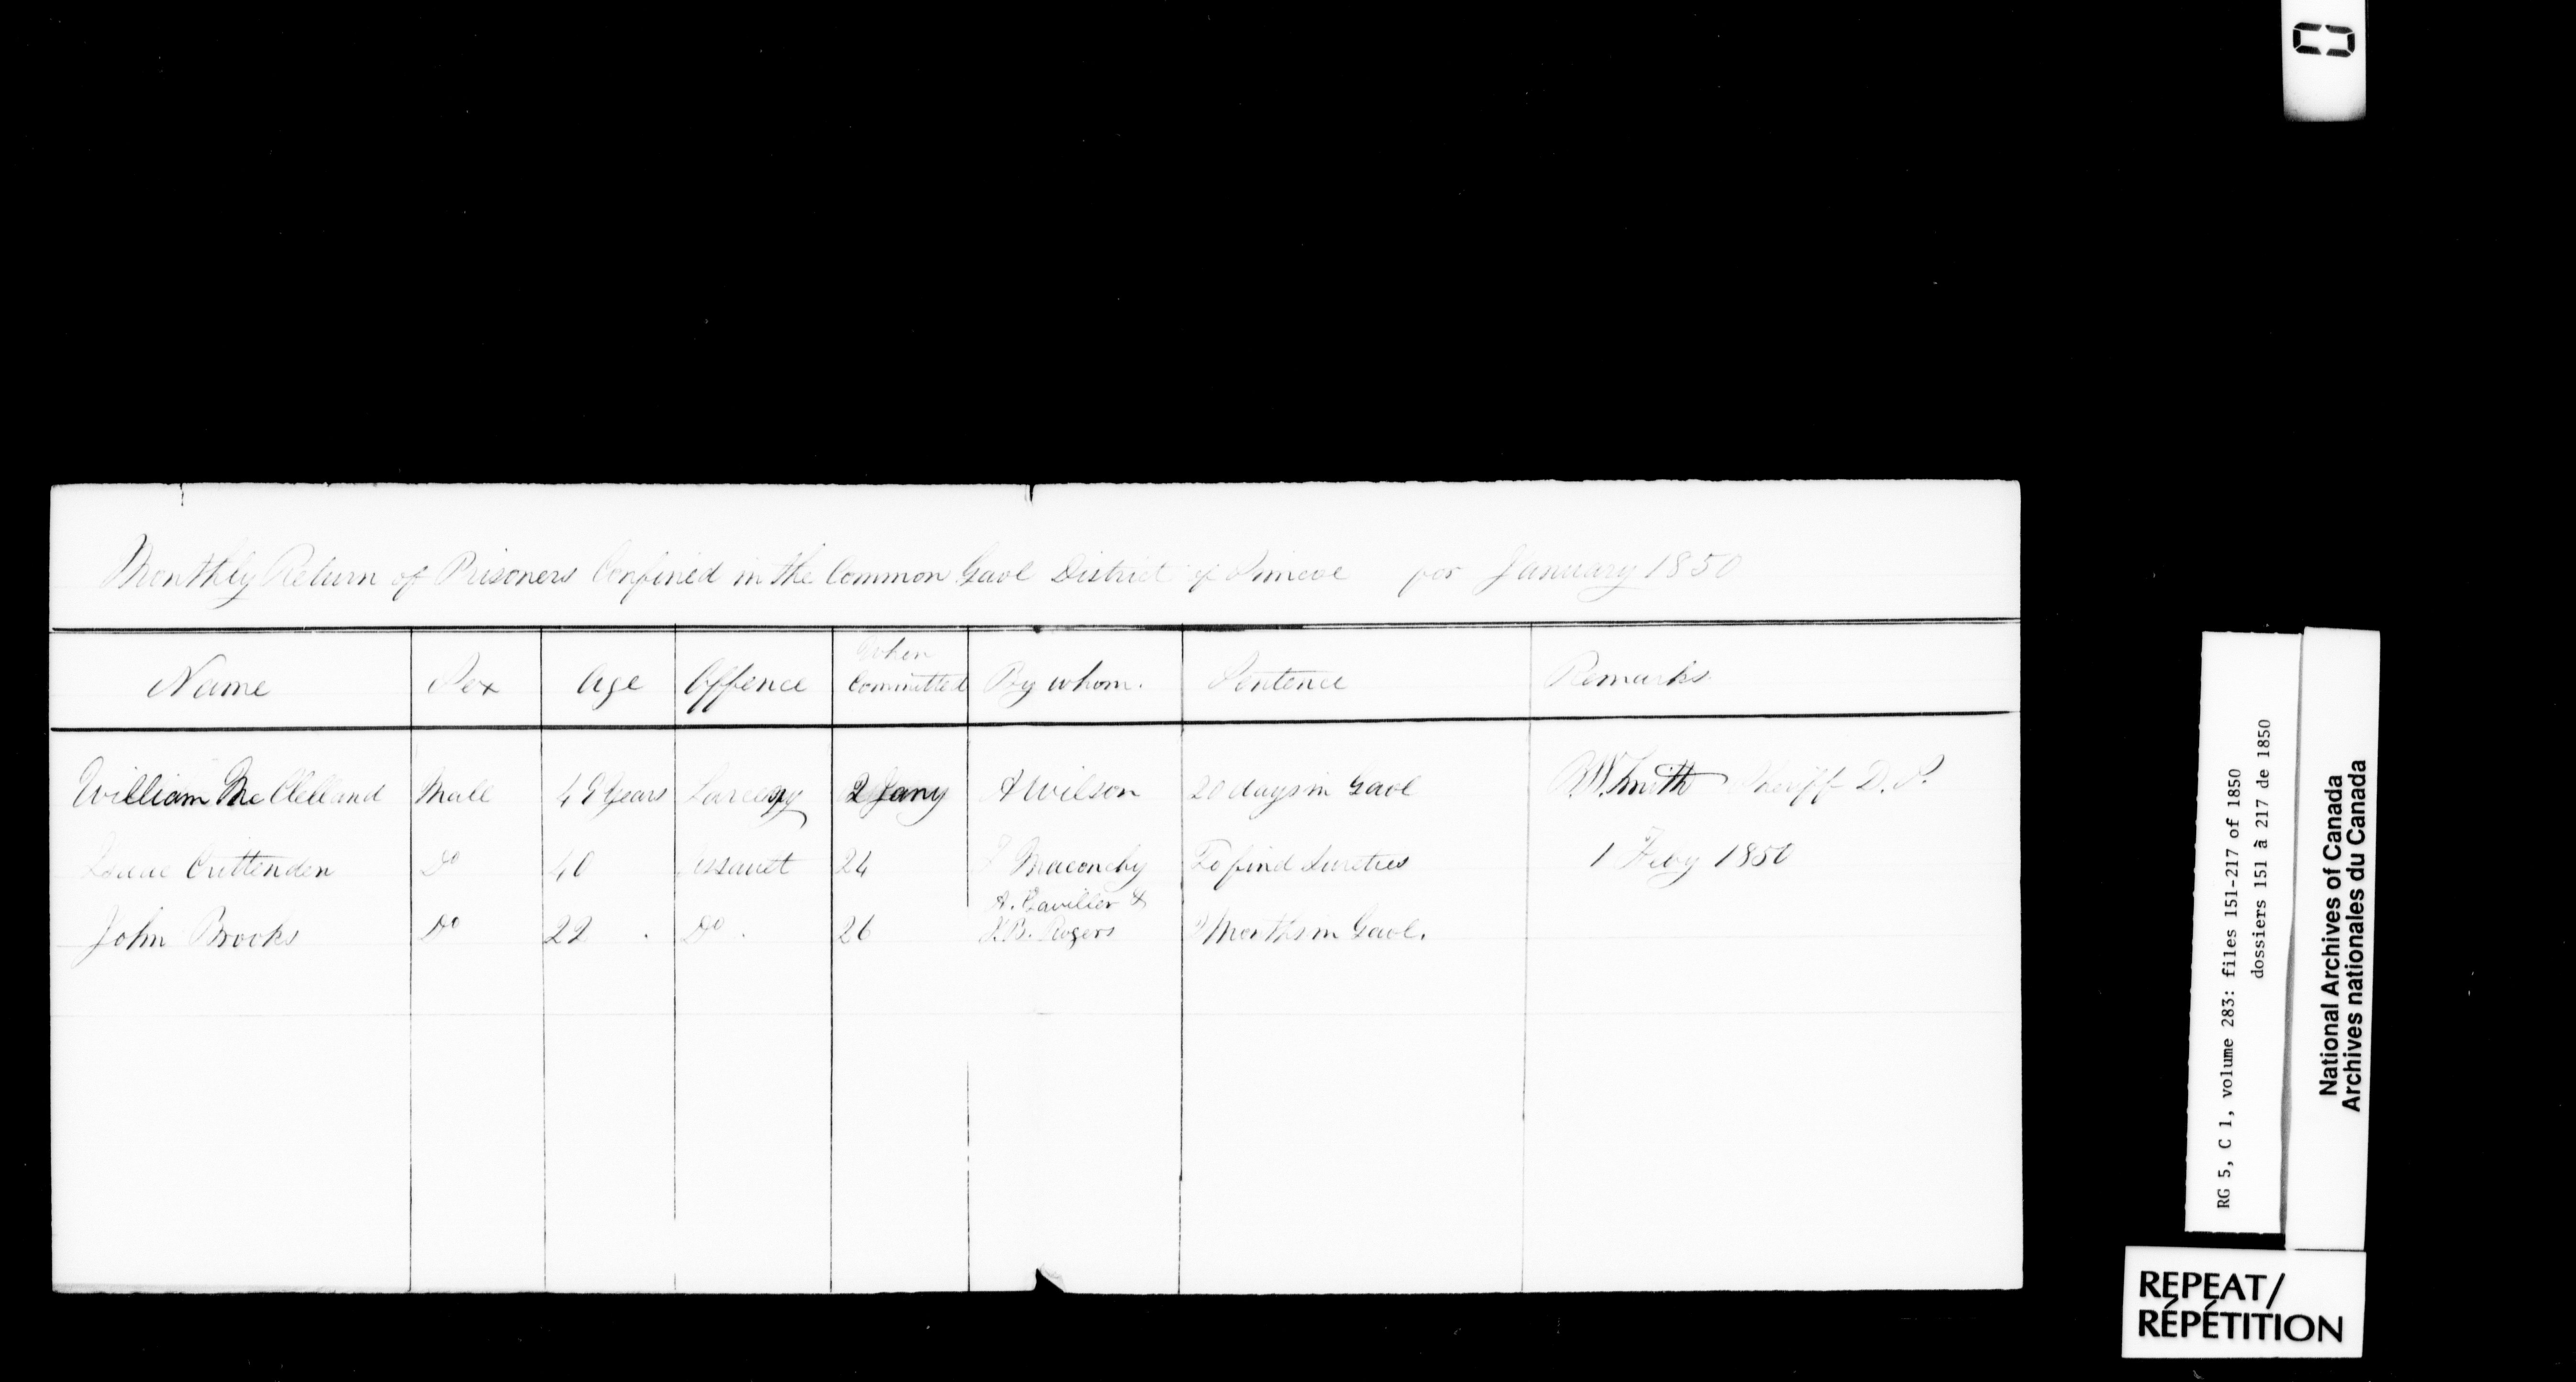 Monthly Return of Prisoners Confined in the Common Gaol District of Simcoe for January 1850
Name Sex Age Offence When Committed By whom. Sentence Remarks
William McClelland Male 49 Years Larceny 2 Jany A Wilson 20 days in Gaol B W Smith Sheriff D. S.
Isaac Crittenden Do 40 Assault 24 Maconchy To find Sureties 1 Feby 1850
A. Gaviller &
John Brooks Do 22 Do. 26 Rogers 2 Months in Gaol.
RG 5, C 1, volume 283: files 151-217 of 1850
dossiers 151 à 217 de 1850
National Archives of Canada
Archives nationales du Canada
REPEAT/
RÉPÉTITION